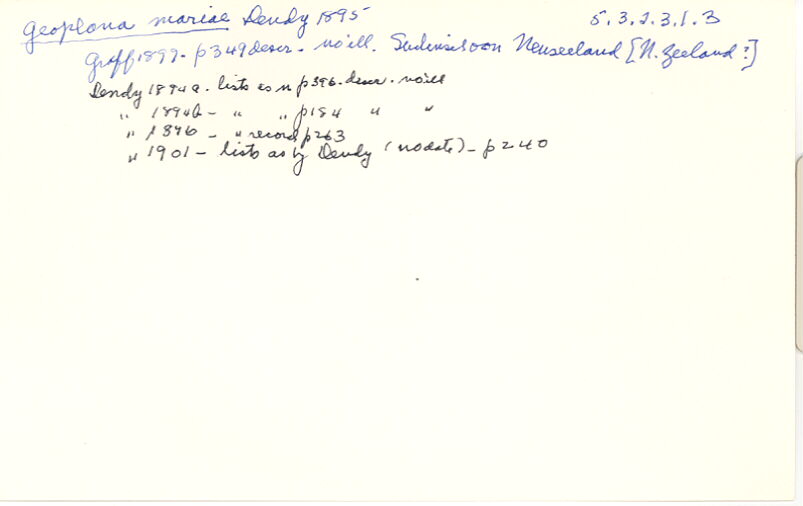 Geoplana mariae Dendy 1895 5.3.2.3.1.3
Graff 1899. p349 descr - no ill. Sudinsel von Neuseeland [N. Zeeland?]
Dendy 1894a. lists as n p396. descr. no ill
" 1894b - " " p184 " "
" 1896 - " record p263
" 1901 - lists as by Dendy (no date) - p240